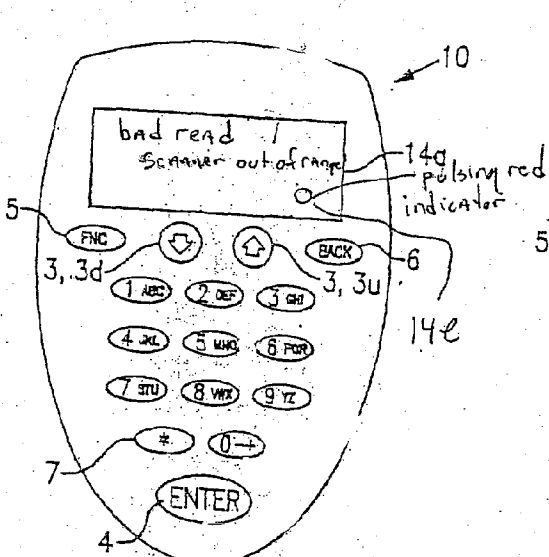 10
bad read /
scanner out of range
14a
pulsing red
indicator
5
FNC
BACK
6
5
3, 3d
3, 3u
14e
1 ABC 2 DEF 3 GHI
4 JKL 5 MNO 6 PQR
7 STU 8 VWX 9 YZ
7
* 0→
ENTER
4